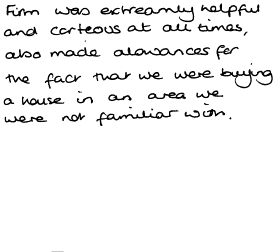 Firm was extreamly helpful
and corteous at all times,
also made alowances for
the fact that we were buying
a house in an area we
were not familiar with.